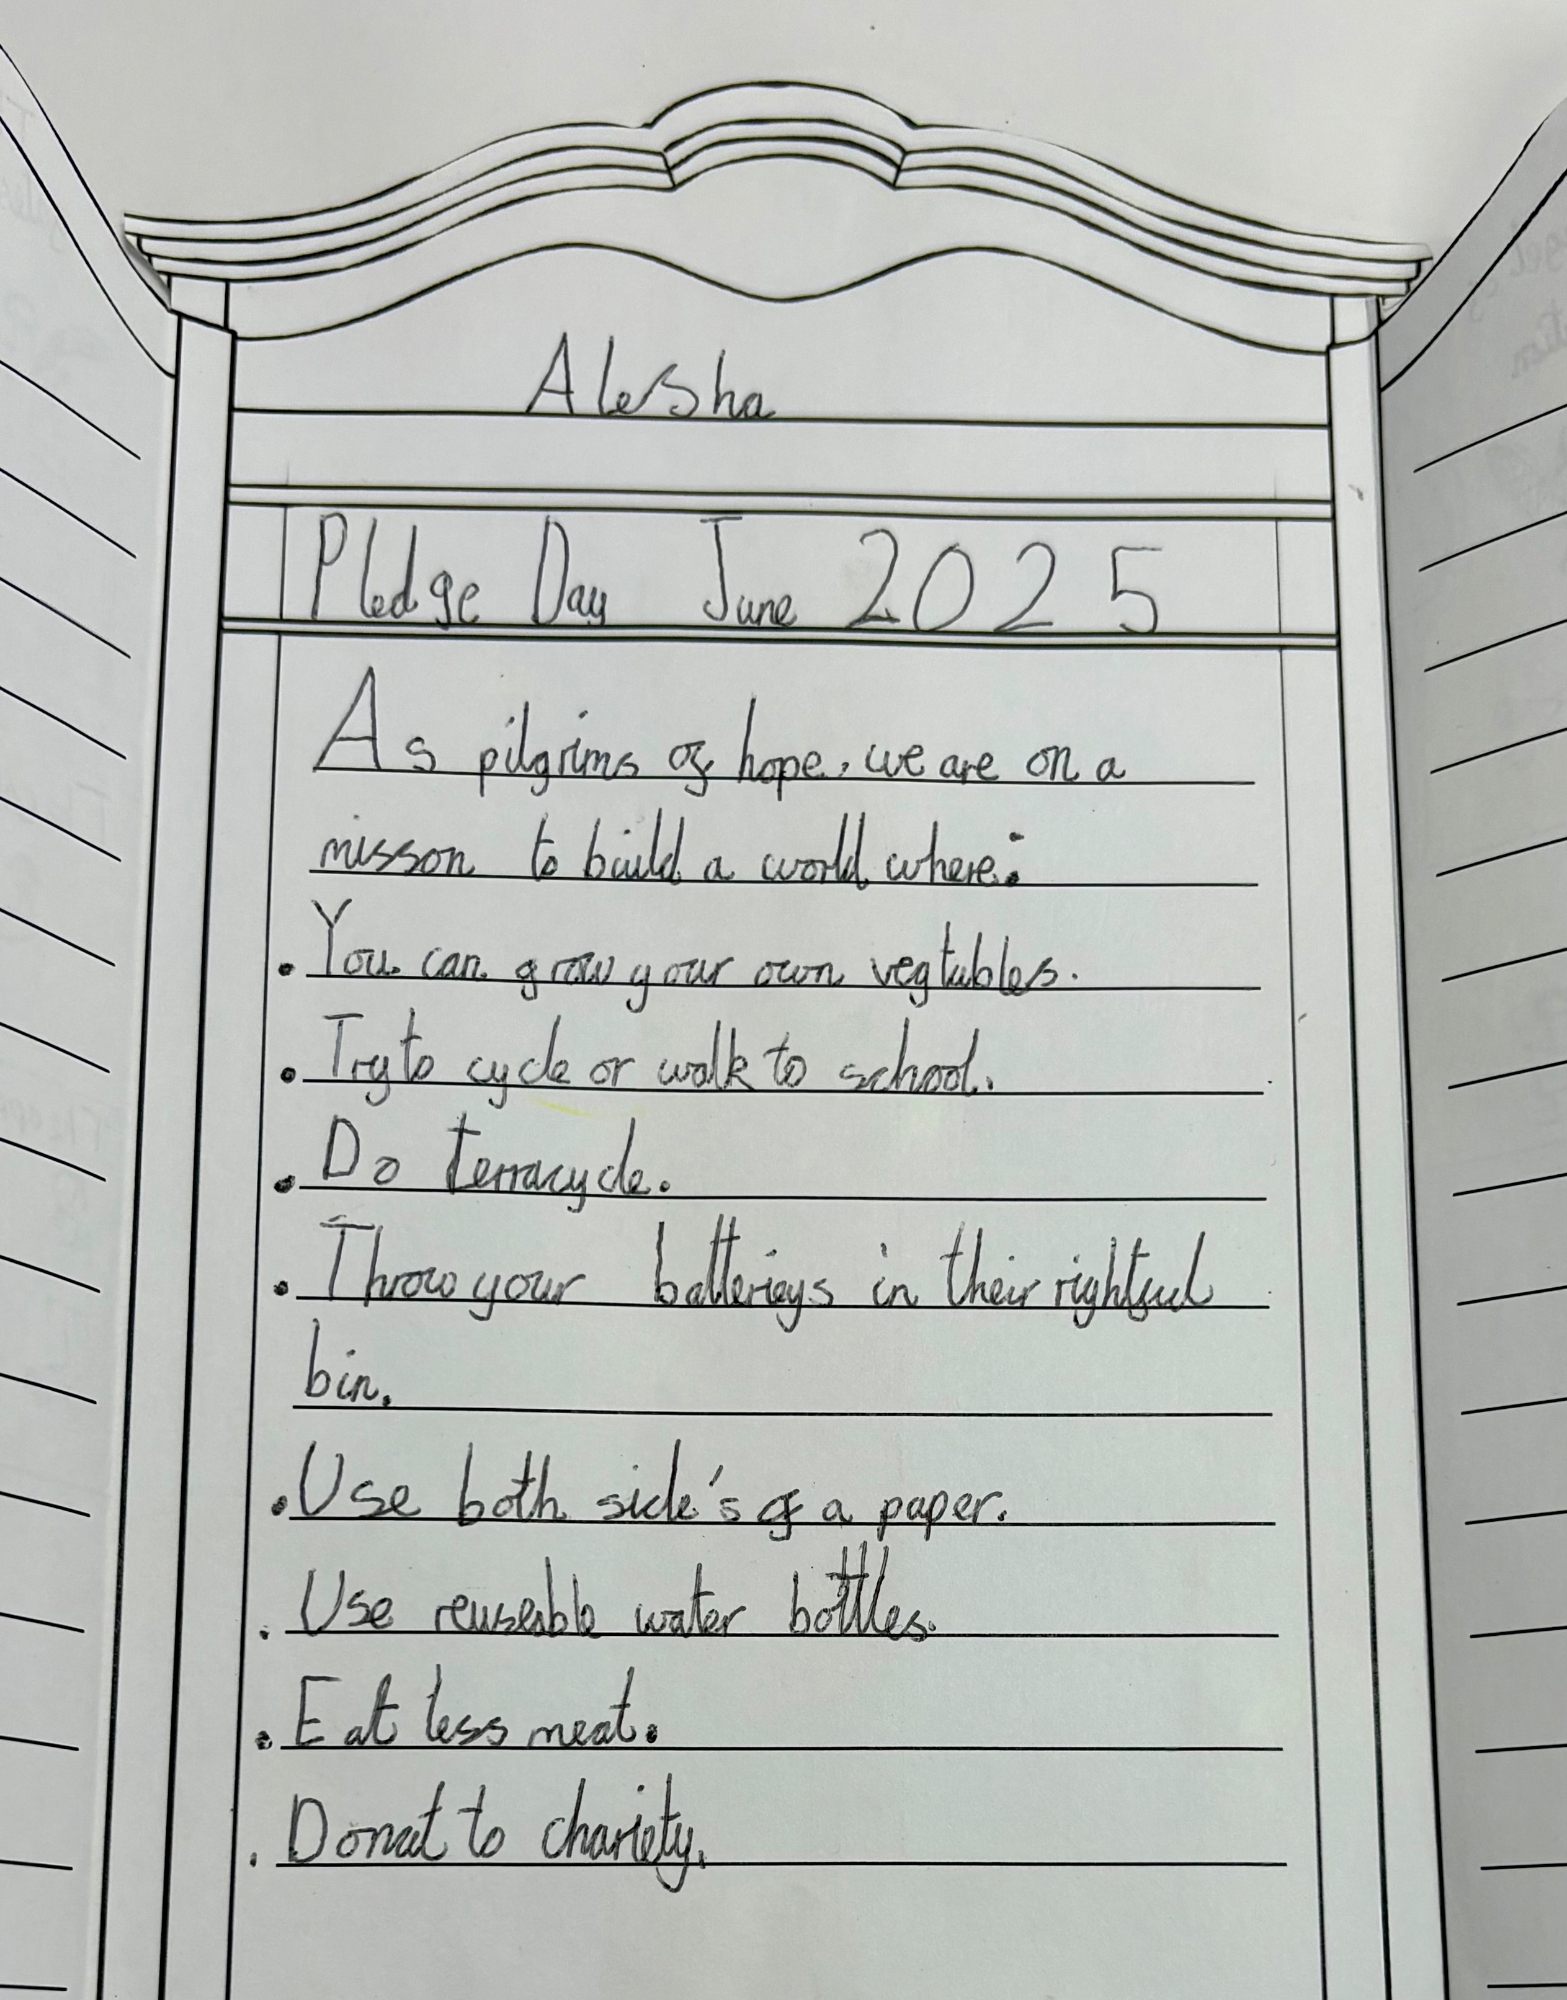 Alesha
Pledge Day June 2025
As pilgrims of hope, we are on a
misson to build a world where:
• You can grow your own vegtables.
• Try to cycle or walk to school.
• Do terracycle.
• Throw your batterieys in their rightful
bin.
• Use both side's of a paper.
• Use reuseable water bottles.
• Eat less meat.
• Donat to chariety.